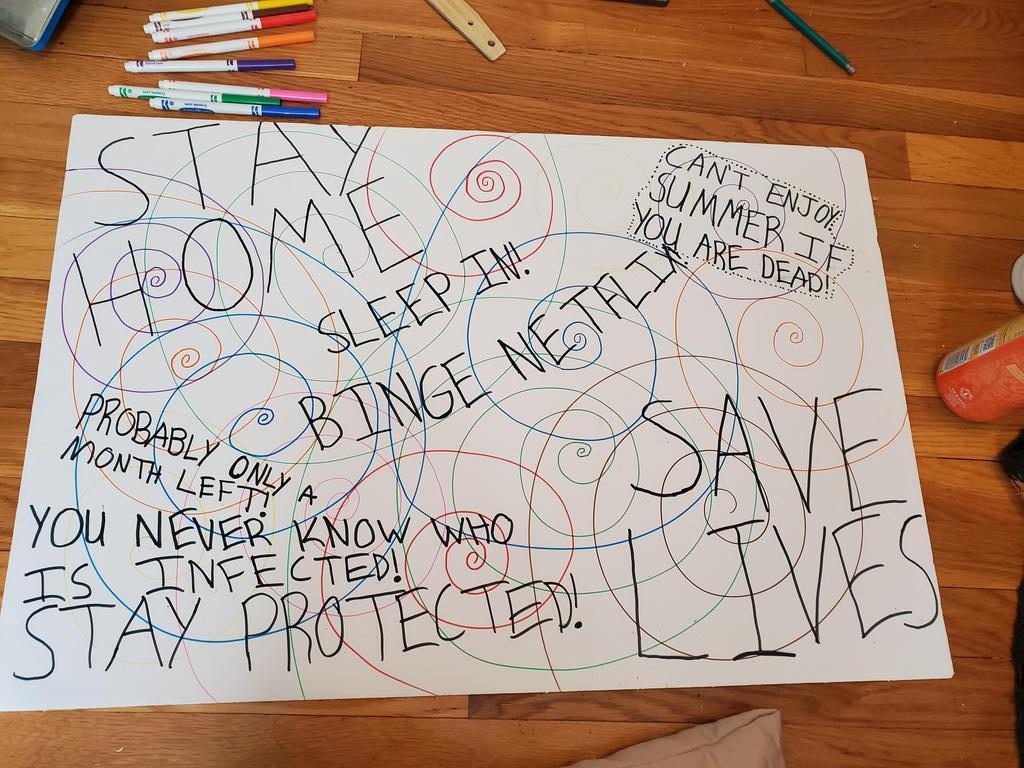 STAY
HOME
SLEEP IN!
BINGE NETALIX
CAN'T ENJOY
SUMMER IF
YOU ARE DEAD!
PROBABLY ONLY A
MONTH LEFT!
YOU NEVER KNOW WHO
IS INFECTED!
STAY PROTECTED!
SAVE
LIVES